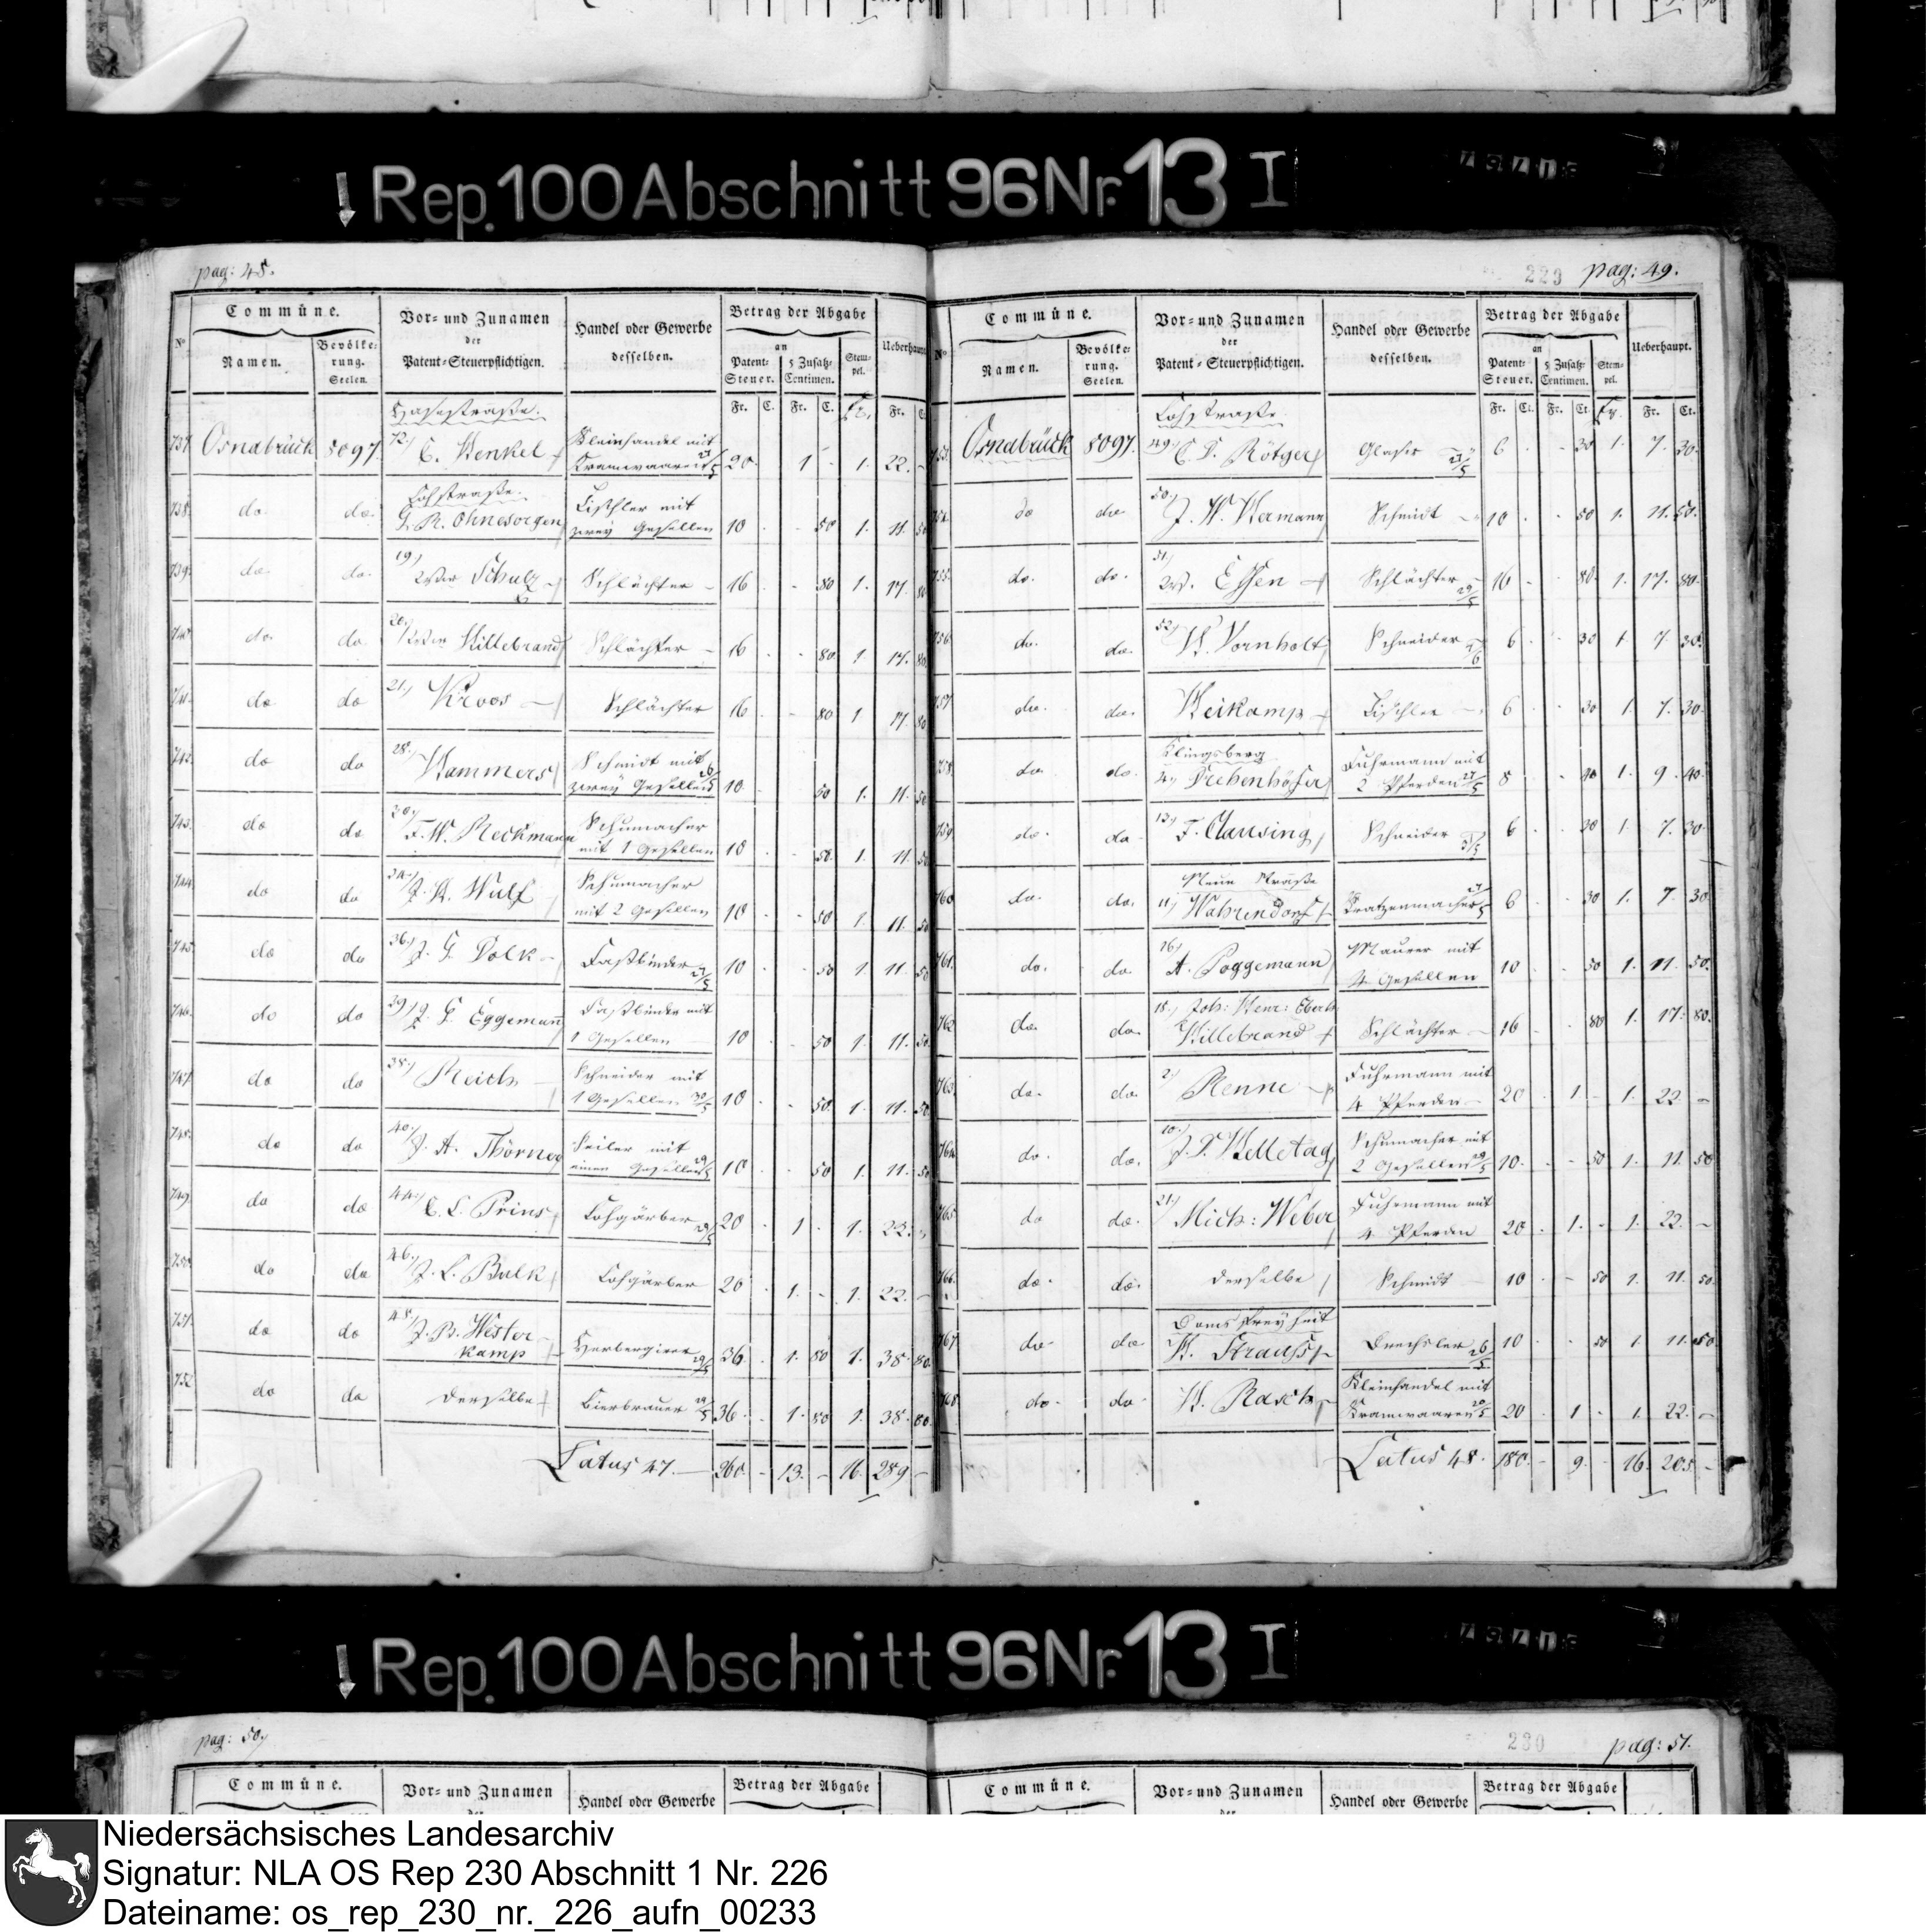 Rep. 100 Abschnitt 96 Nr. 13 I
pag: 48.
Commüne.
Vor- und Zunamen
der
Patent-Steuerpflichtigen.
Handel oder Gewerbe
desselben.
Betrag der Abgabe
an
Ueberhaupt
No
Namen.
Bevölke-
rung.
Seelen.
Patent-
Steuer.
5 Zusatz-
Centimen.
Stem-
pel.
Fr. C. Fr. C. Fr. Fr. C.
Hasestraße.
737. Osnabrück 8097. 72) C. Henkel Kleinhandel mit
Kramwaaren 20. 1 - 1. 22. -
Lohstraße.
738. do. do. G. R. Ohnesorgen Tischler mit
zwey Gesellen 10 - 50 1. 11. 50
739. do do. 19) Schulz Schlächter 16 - 80 1. 17. 80
740. do. do. 20) Hillebrand Schlächter 16 - 80. 1 17. 80.
741. do do 21) Kroos Schlächter 16 - 80 1 17. 80
742. do do 28.) Hammers Schmidt mit
zwey Gesellen 10. 50 1. 11. 50
743. do do 30) F. W. Meckmann Schumacher
mit 1 Gesellen 10 - 50. 1. 11. 50
744. do do 34) Wulf Schumacher
mit 2 Gesellen 10 - 50 1. 11. 50
745. do do 36) J. G. Polk Faßbinder 27/5 10 - 50 1. 11. 50
746. do do 39) J. G. Eggemann Faßbinder mit
1 Gesellen 10 - 50 1. 11. 50.
747. do do 38) Reich Schneider mit
1 Gesellen 30/5 10 - 50. 1. 11. 50.
748. do do 40) J. A. Thörner Seiler mit
einen Gesellen 10 - 50 1. 11. 50
749. do do 44) C. L. Prins Lohgärber 29/5 20 1 - 1. 22. -
750. do do 46) J. L. Bulk Lohgärber 20 1. - 1. 22. -
751. do do 48) J. B. Wester-
kamp Herbergirer 36. 1. 80 1. 38. 80.
752 do do derselbe Bierbrauer 36. 1. 80 1. 38. 80.
Latus 47. 260. - 13. - 16. 289 -
229
pag: 49.
Commüne.
Vor- und Zunamen
der
Patent-Steuerpflichtigen.
Handel oder Gewerbe
desselben.
Betrag der Abgabe
an
Ueberhaupt.
No
Namen.
Bevölke-
rung.
Seelen.
Patent-
Steuer.
5 Zusatz-
Centimen.
Stem-
pel.
Fr. Ct. Fr. Ct. Fr. Fr. Ct.
Lohstraße.
753. Osnabrück 8097. 49) Rötger Glaser 6 - 30 1. 7. 30.
754. do do 50.) J. W. Hermann Schmidt 10 - 50 1. 11. 50.
755. do. do. 51.) Essen Schlächter 29/5 16 - 80. 1. 17. 80.
756. do. do. 52) Vornholt Schneider 6 - 30 1 7 30.
757. do. do. Heikamp Tischler 6 - 30 1. 7. 30.
Klingsberg
758. do. do. Fuhrmann mit
2 Pferden 27/5 8 40 1. 9. 40.
759. do. do 13) F. Clausing Schneider 6 - 30 1. 7. 30
Neue Straße
760 do. do. 11) Wahrendorf Kratzenmacher 6 - 30 1. 7. 30
761. do. do. 16) A. Poggemann Maurer mit
4 Gesellen 10 - 50 1. 11. 50.
762 do. do. 18.) Joh: Henr: Eberh.
Hillebrand Schlächter 16 - 80 1. 17. 80.
763. do. do. 2) Renne Fuhrmann mit
4 Pferden 20 1 - 1. 22 -
764. do. do. 10.) Schumacher mit
2 Gesellen 10. - 50 1. 11. 50
765. do do. 21) Mich: Weber Fuhrmann mit
4 Pferden 20 1. - 1. 22. -
766. do. do. derselbe Schmidt 10 - 50 1. 11. 50.
Doms Freyheit
767. do do. Strauss Drechsler 26/5 10 - 50 1. 11. 50
768. do. do. Rasch Kleinhandel mit
Kramwaaren 20 1 - 1. 22. -
Latus 48. 180. - 9. - 16. 205. -
Rep. 100 Abschnitt 96 Nr. 13 I
pag: 50.
Commüne.
Vor- und Zunamen
Handel oder Gewerbe
Betrag der Abgabe
230
pag: 51.
Commüne.
Vor- und Zunamen
Handel oder Gewerbe
Betrag der Abgabe
Niedersächsisches Landesarchiv
Signatur: NLA OS Rep 230 Abschnitt 1 Nr. 226
Dateiname: os_rep_230_nr._226_aufn_00233